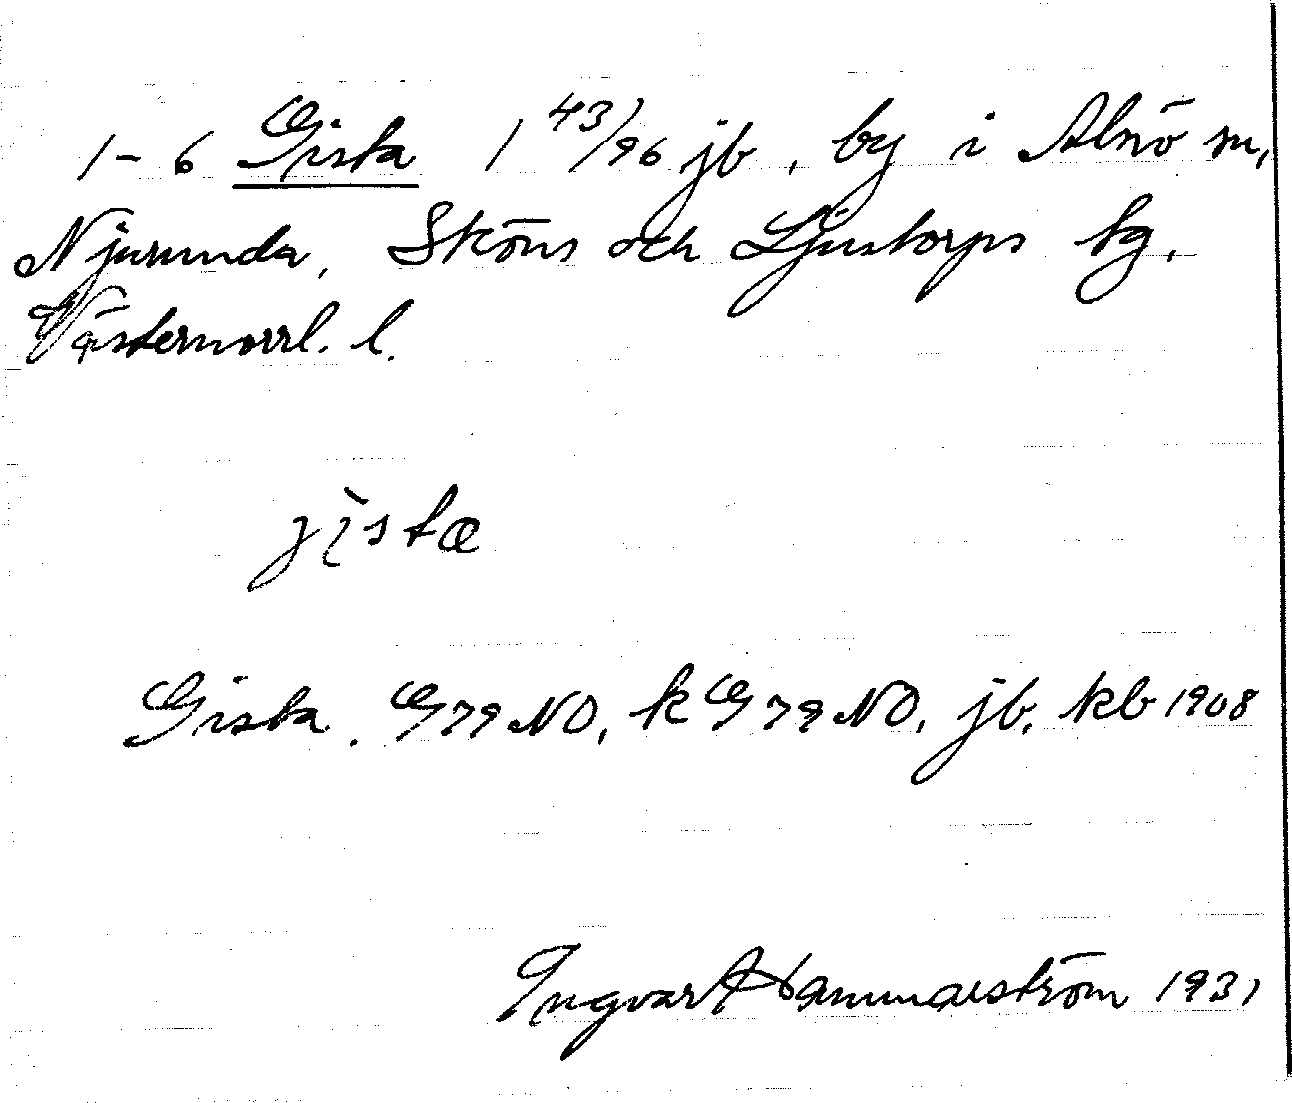 1-6 Gista 1 43/96 jb, by i Alnö sn,
Njurunda, Sköns och Ljustorps tg.
Västernorrl. l.
jista
Gista. G79NO, kG79NO, jb, kb 1908
Ingvar Hammarström 1931